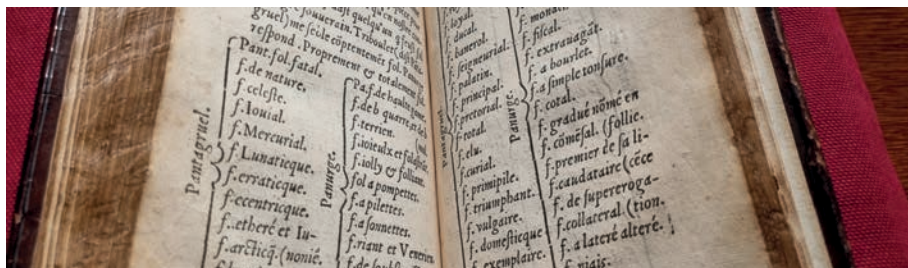 gruel) me
respond. Proprement & totalement fol.
Pantagruel.
Pant. fol. fatal.
f. de nature.
f. celeſte.
f. Iouial.
f. Mercurial.
f. Lunaticque.
f. erraticque.
f. eccentricque.
f. etheré et Iu-
f. arcticq̃. (nonië.
Panurge.
Pa. f. de haulte game.
f. de b quarre, et de b
f. terrien.
f. ioieulx et
f. iolly & folliant.
fol a pompettes.
f. a pilettes.
f. a ſonnettes.
f. riant et Venerien
Pantagruel.
f. loyal.
f. ducal.
f. banerol.
f. ſeigneurial.
f. palatin.
f. principal.
f. pretorial.
f. total.
f. elu.
f. curial.
f. primipile.
f. triumphant.
f. vulgaire.
f. domeſticque
f. exemplaire.
Panurge.
f. fiſcal.
f. extrauagãt.
f. a bourlet.
f. a ſimple tonſure.
f. cotal.
f. gradué nõmé en
f. cõmẽſal. (follie.
f. premier de ſa li-
f. caudataire (cẽce
f. de ſupereroga-
f. collateral (tion.
f. a lateré alteré.
f. niais.